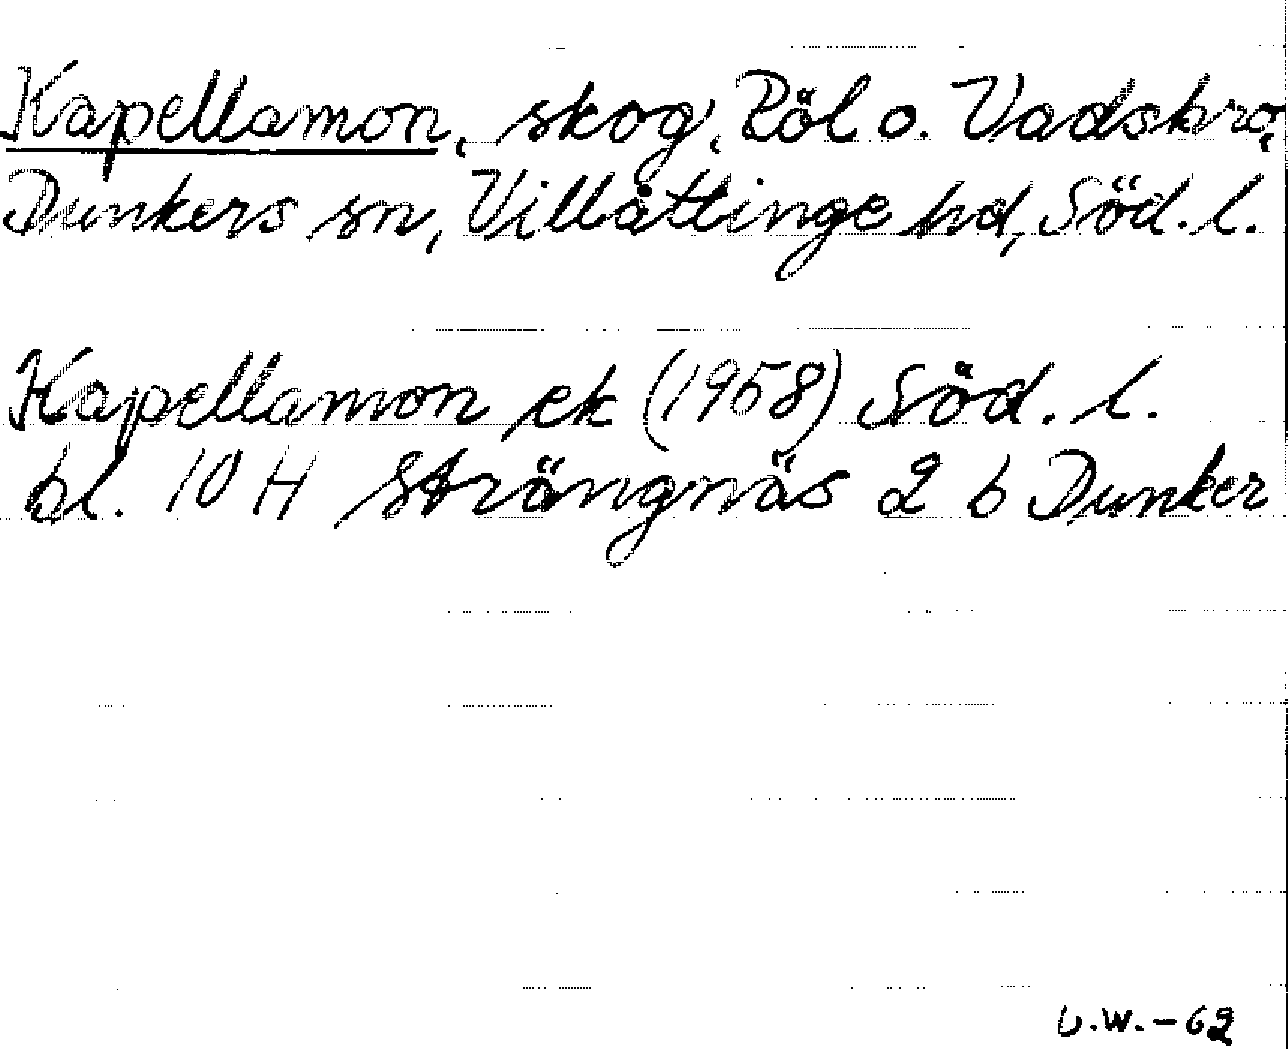 Kapellamon, skog, Pöl o. Vadsbro,
Dunkers sn, Villåttinge hd, Söd. l.
Kapellamon ek (1958) Söd. l.
bl. 10 H Strängnäs 2 b Dunker
U.W.-62